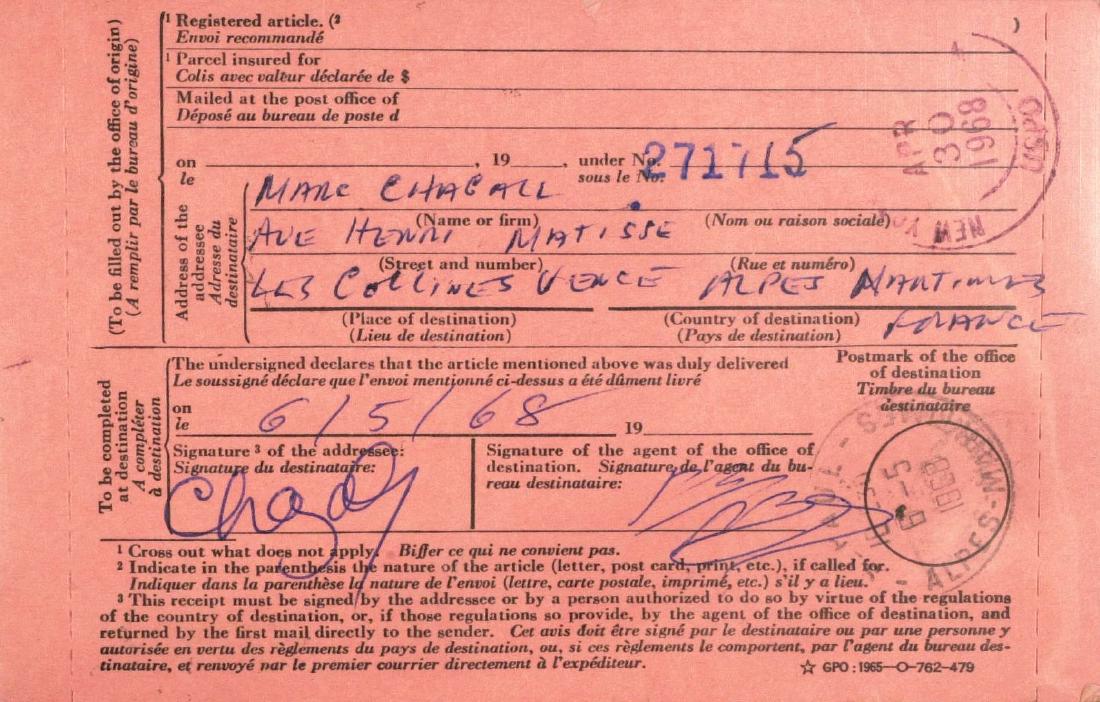 (To be filled out by the office of origin)
(A remplir par le bureau d'origine)
¹ Registered article. (²                                        )
Envoi recommandé
¹ Parcel insured for
Colis avec valeur déclarée de $
Mailed at the post office of
Déposé au bureau de poste d
on , 19 , under No. 271715
le sous le No.
APR
30
1968
USPO
NEW YORK
Address of the
addressee
Adresse du
destinataire
MARC CHAGALL
(Name or firm) (Nom ou raison sociale)
AVE HENRI MATISSE
(Street and number) (Rue et numéro)
LES COLLINES VENCE ALPES MARITIMES
(Place of destination) (Country of destination) FRANCE
(Lieu de destination) (Pays de destination)
To be completed
at destination
A compléter
à destination
The undersigned declares that the article mentioned above was duly delivered
Le soussigné déclare que l'envoi mentionné ci-dessus a été dûment livré
Postmark of the office
of destination
Timbre du bureau
destinataire
on
le 6/5/68 19
Signature ³ of the addressee:
Signature du destinataire:
Chagall
Signature of the agent of the office of
destination. Signature de l'agent du bu-
reau destinataire:
6-5
ALPES-MARITIMES
¹ Cross out what does not apply. Biffer ce qui ne convient pas.
² Indicate in the parenthesis the nature of the article (letter, post card, print, etc.), if called for.
Indiquer dans la parenthèse la nature de l'envoi (lettre, carte postale, imprimé, etc.) s'il y a lieu.
³ This receipt must be signed by the addressee or by a person authorized to do so by virtue of the regulations
of the country of destination, or, if those regulations so provide, by the agent of the office of destination, and
returned by the first mail directly to the sender. Cet avis doit être signé par le destinataire ou par une personne y
autorisée en vertu des règlements du pays de destination, ou, si ces règlements le comportent, par l'agent du bureau des-
tinataire, et renvoyé par le premier courrier directement à l'expéditeur.
☆ GPO : 1965—O-762-479